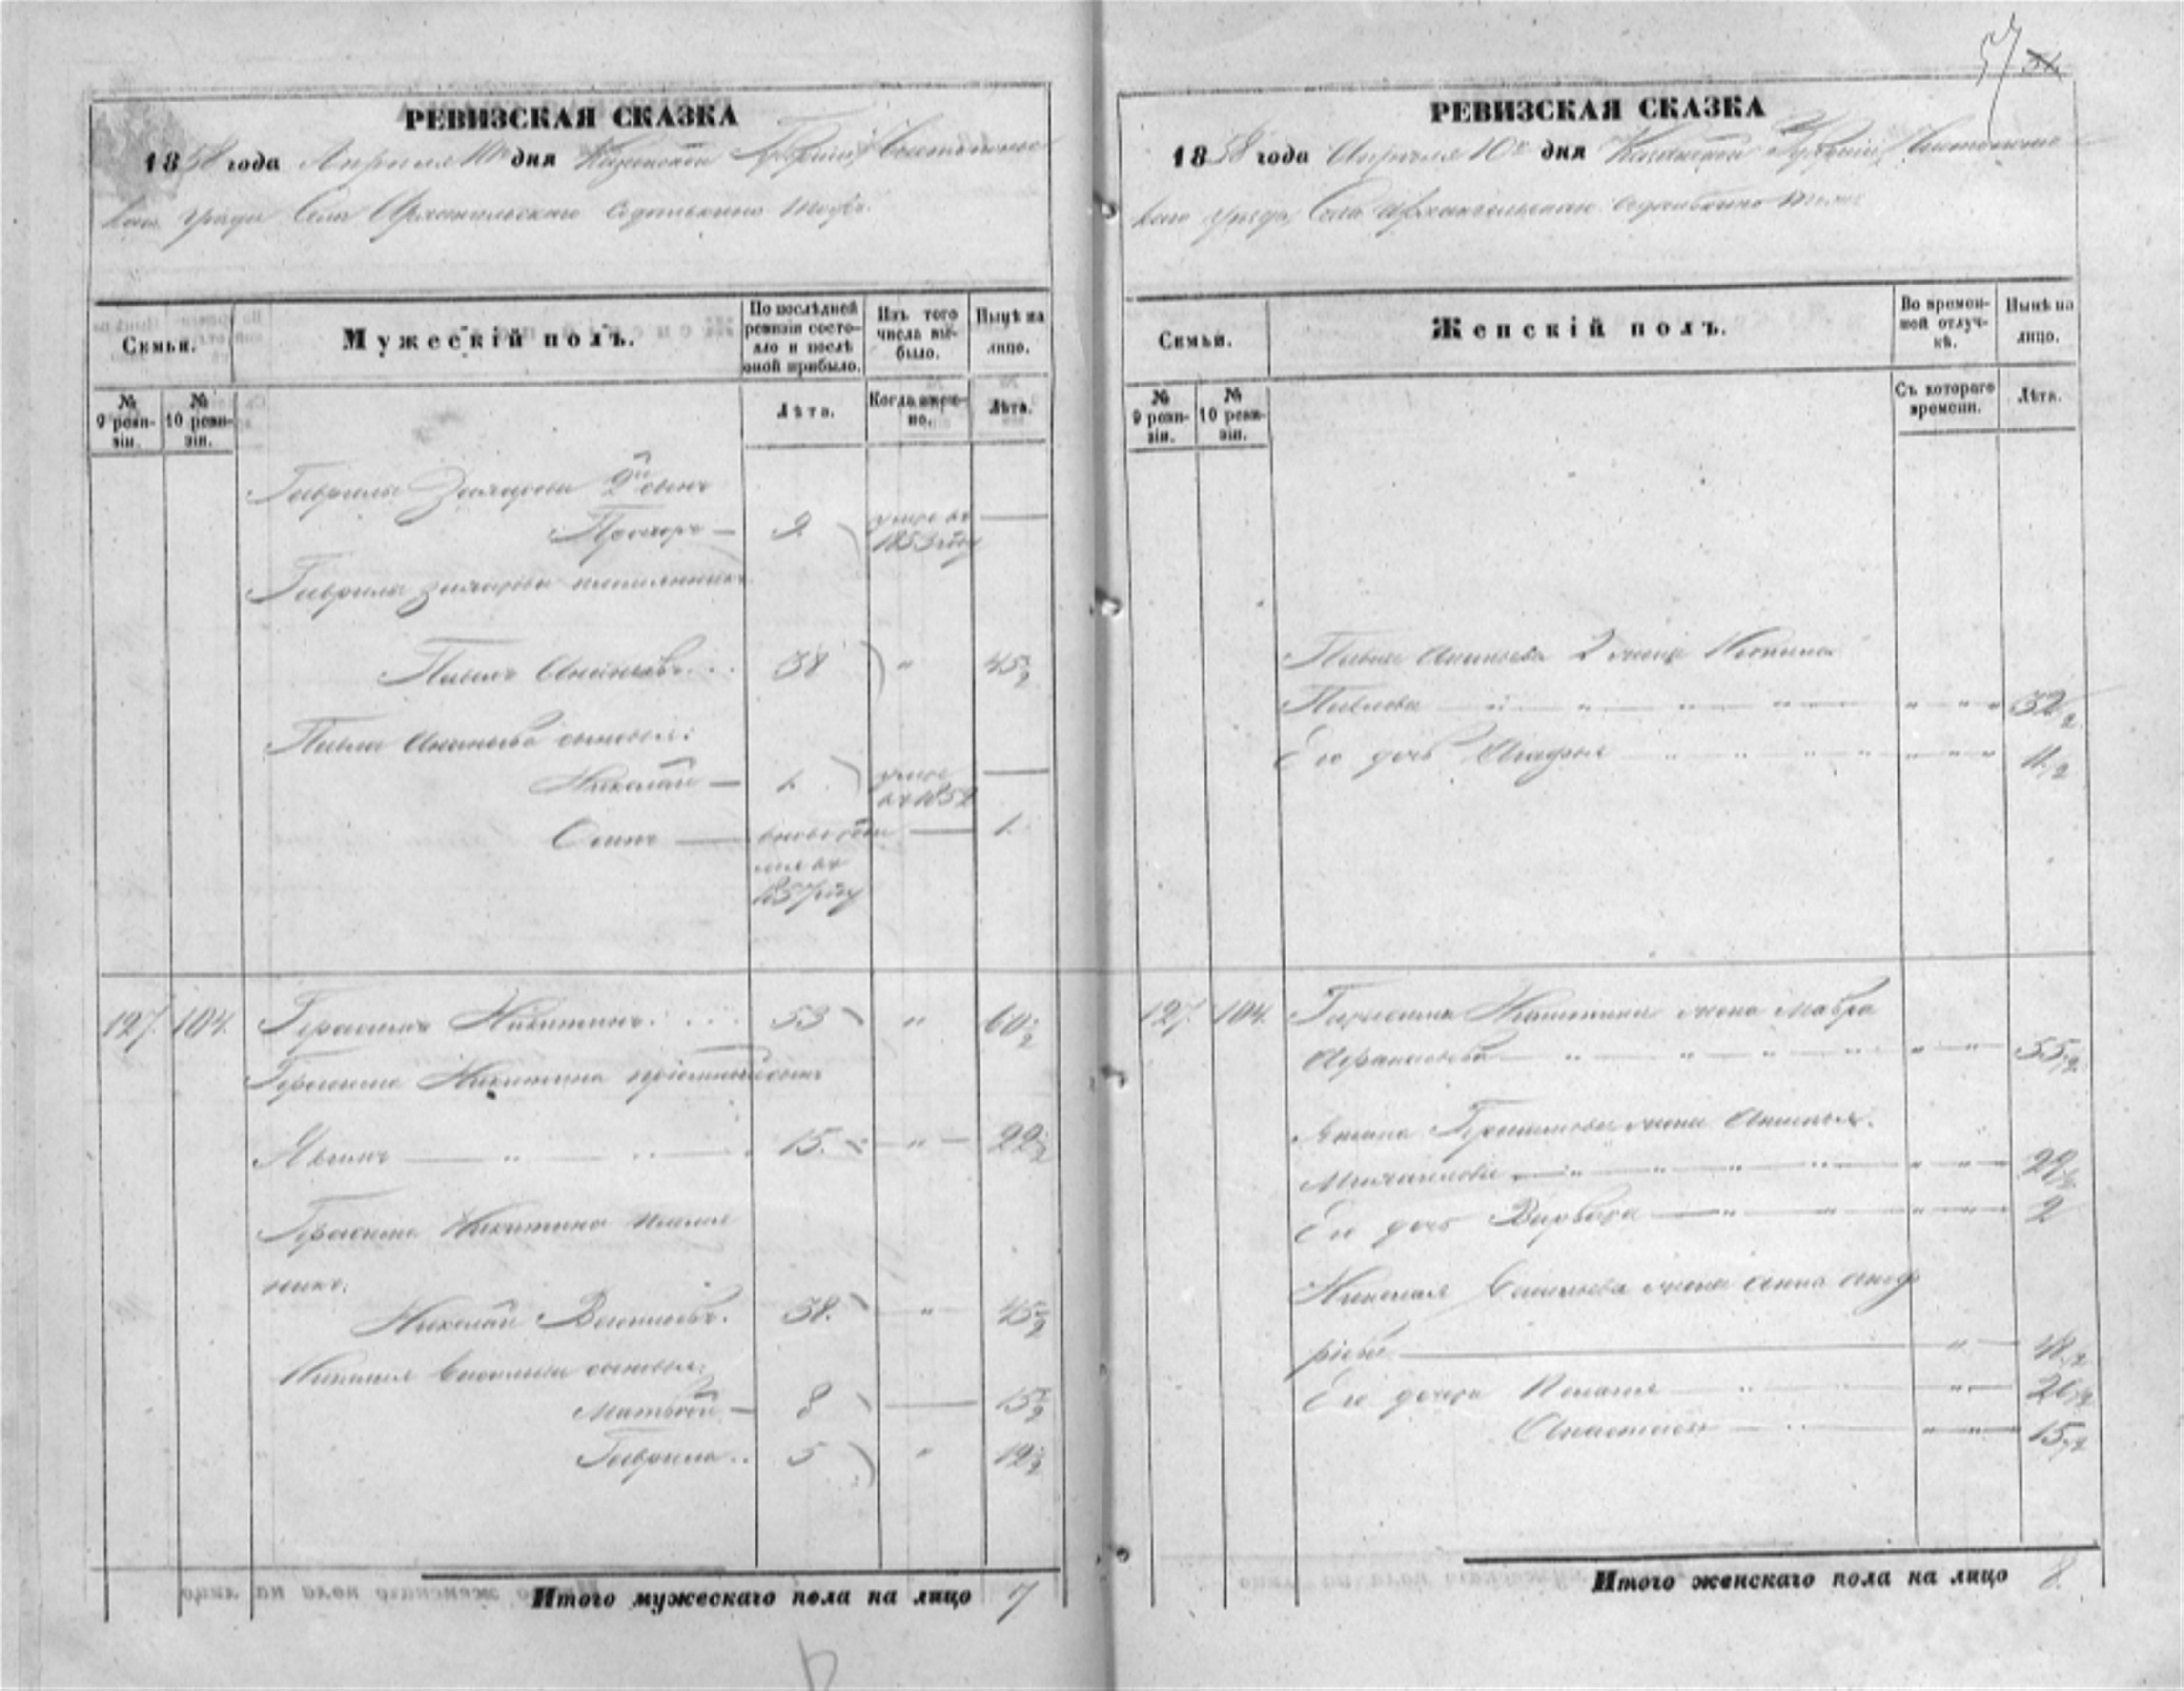 57 54
РЕВИЗСКАЯ СКАЗКА
1858 года Апреля 10го дня Казанской Губерніи Чистопольс
каго уезда Села Архангельскаго тожъ
Семьи.
Мужескій полъ.
По послѣдней ревизіи состояло и послѣ оной прибыло.
Изъ того числа выбыло.
Нынѣ на лицо.
№ 9 ревизіи.
№ 10 ревизіи.
Лѣта.
Когда именно.
Лѣта.
Гаврилы Захарова 2й сынъ
Прохоръ — 9 умре въ 1853 году —
Гаврилы Захарова племянникъ
Павелъ Ананьевъ 38 " 45 1/2
Павла Ананьева сыновья:
Николай — 1 умре въ 1852 —
Осипъ — вновь рожденъ въ 1857 году — 1.
127. 104. Герасимъ Никитинъ 53 " 60 1/2
Герасима Никитина пріемный сынъ
Якимъ — " — " 15. — " — 22 1/2
Герасима Никитина племян
никъ:
Николай Васильевъ. 38. " 45 1/2
Николая Васильева сыновья:
Матвей — 8 — 15 1/2
Гаврила 5 " 12 1/2
Итого мужескаго пола на лицо 7
РЕВИЗСКАЯ СКАЗКА
1858 года Апреля 10го дня Казанской Губерніи Чистопольс
каго уезда, Села Архангельскаго тожъ
Семьи.
Женскій полъ.
Во временной отлучкѣ.
Нынѣ на лицо.
№ 9 ревизіи.
№ 10 ревизіи.
Съ котораго времени.
Лѣта.
Павла Ананьева 2 жена
Павлова — " — " — " — " 32 1/2
Его дочь Агафья — " — " — " 11 1/2
127. 104. Герасима Никитина жена Мавра
Афанасьева — " — " — " — " 55 1/2
Якима Герасимова жена
Михайлова — " — " — " — "
Его дочь Варвара — " — " — " 2
Николая Васильева жена Анна
— "
Его дочери Пелагея — " — " 20 1/2
Анастасья — " — " 15 1/2
Итого женскаго пола на лицо 8.